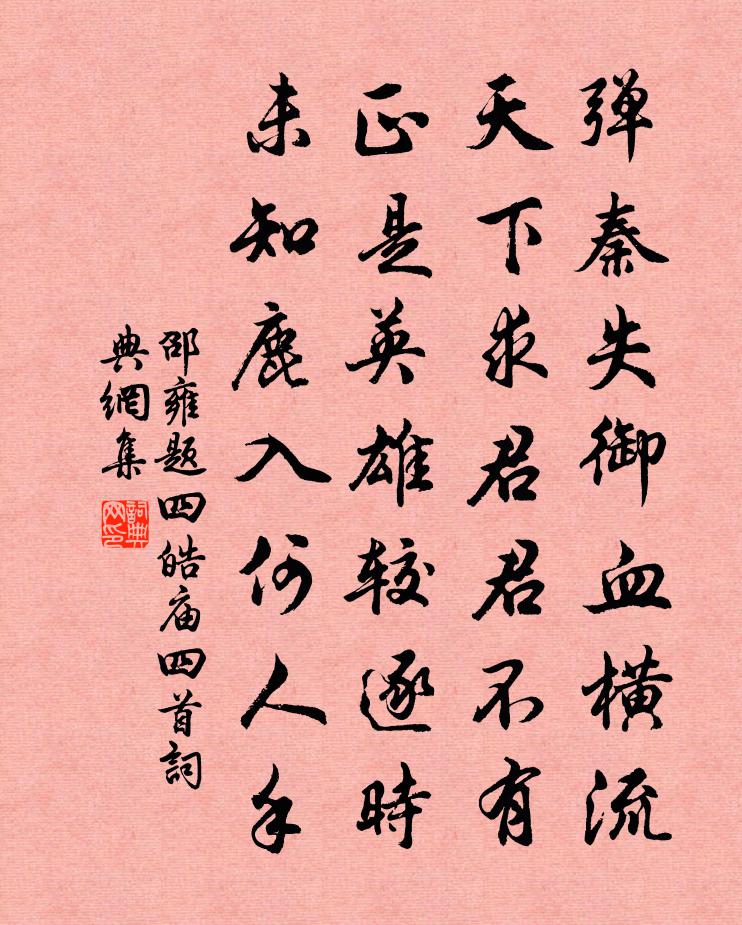 弹秦失御血橫流
天下求君君不有
正是英雄较逐時
未知鹿入何人手
邵雍题四皓庙四首詞
典網集
詞典网印